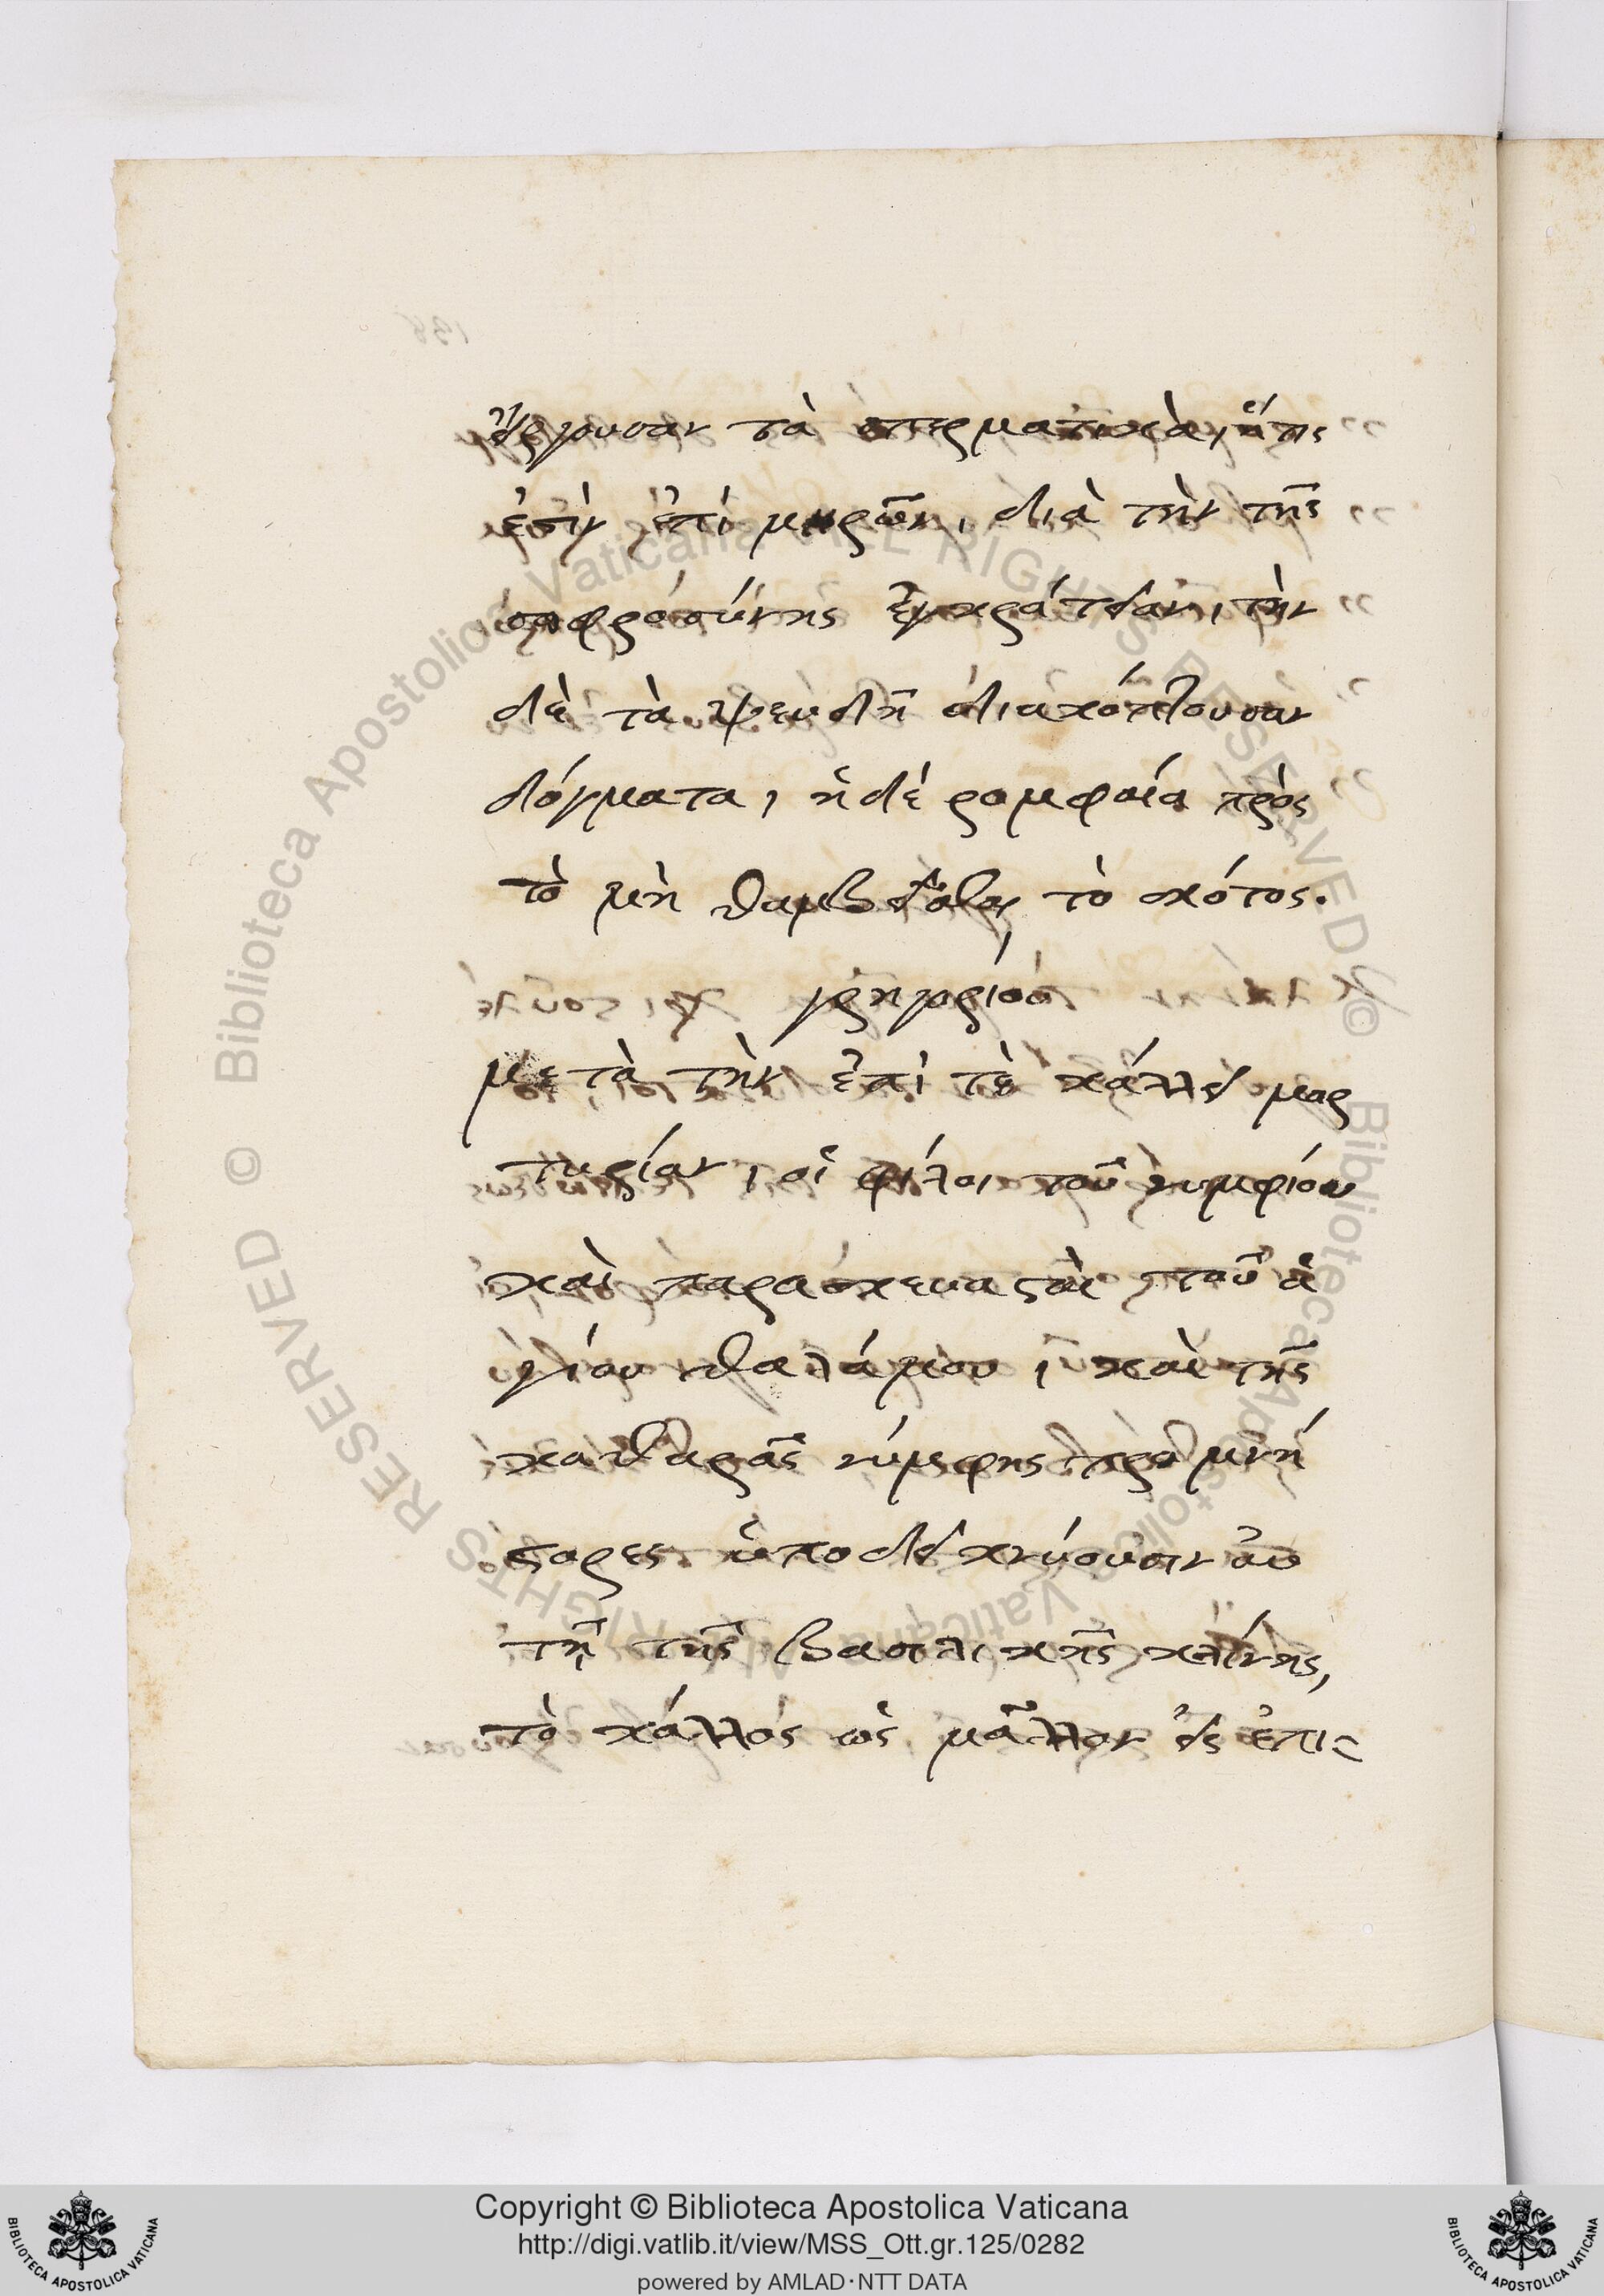 εἴργουσαν τὰ σπερματικὰ, ἥτις
ἐστὶν ἐπὶ μηρῶν, διὰ τὴν τῆς
σωφροσύνης ἐγκράτειαν, τὴν
δὲ τὰ ψευδῆ διακόπτουσαν
δόγματα, ἡ δὲ ρομφαία πρὸς
τὸ μὴ θαμβεῖσθαι τὸ σκότος.
γρηγορίου
μετὰ τὴν ἐπὶ τῷ κάλλει μαρ
τυρίαν, οἱ φίλοι τοῦ νυμφίου
καὶ παρασκευασταὶ τοῦ ἁ
γίου θαλάμου, καὶ τῆς
καθαρᾶς νύμφης προμνή
στορες ὑποδεικνύουσιν αὐ
τῇ τῆς βασιλικῆς κλίνης,
τὸ κάλλος ὡς μᾶλλον εἰς ἐπι
Copyright © Biblioteca Apostolica Vaticana
http://digi.vatlib.it/view/MSS_Ott.gr.125/0282
powered by AMLAD·NTT DATA
BIBLIOTECA APOSTOLICA VATICANA
BIBLIOTECA APOSTOLICA VATICANA
© Biblioteca Apostolica Vaticana ALL RIGHTS RESERVED
© Biblioteca Apostolica Vaticana ALL RIGHTS RESERVED